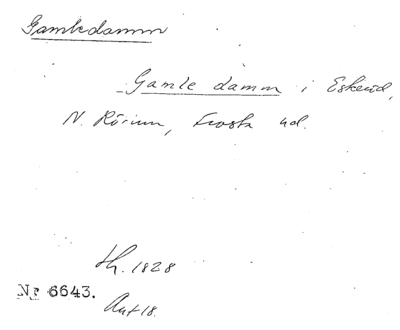 Gamledamm
Gamle damm i Eskeröd,
N. Rörum, Frosta hd.
Lh. 1828
Nr 6643.
Akt 18.